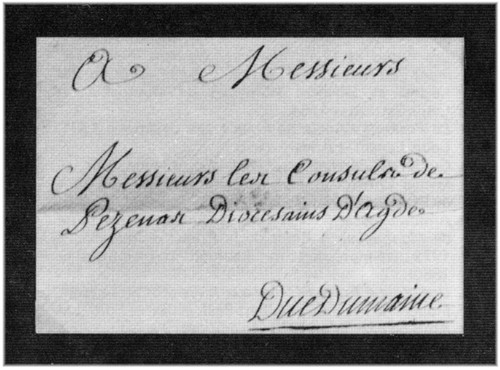 A Messieurs
Messieurs les Consuls de
Pezenas Diocesains D'Agde
Duc Dumaine